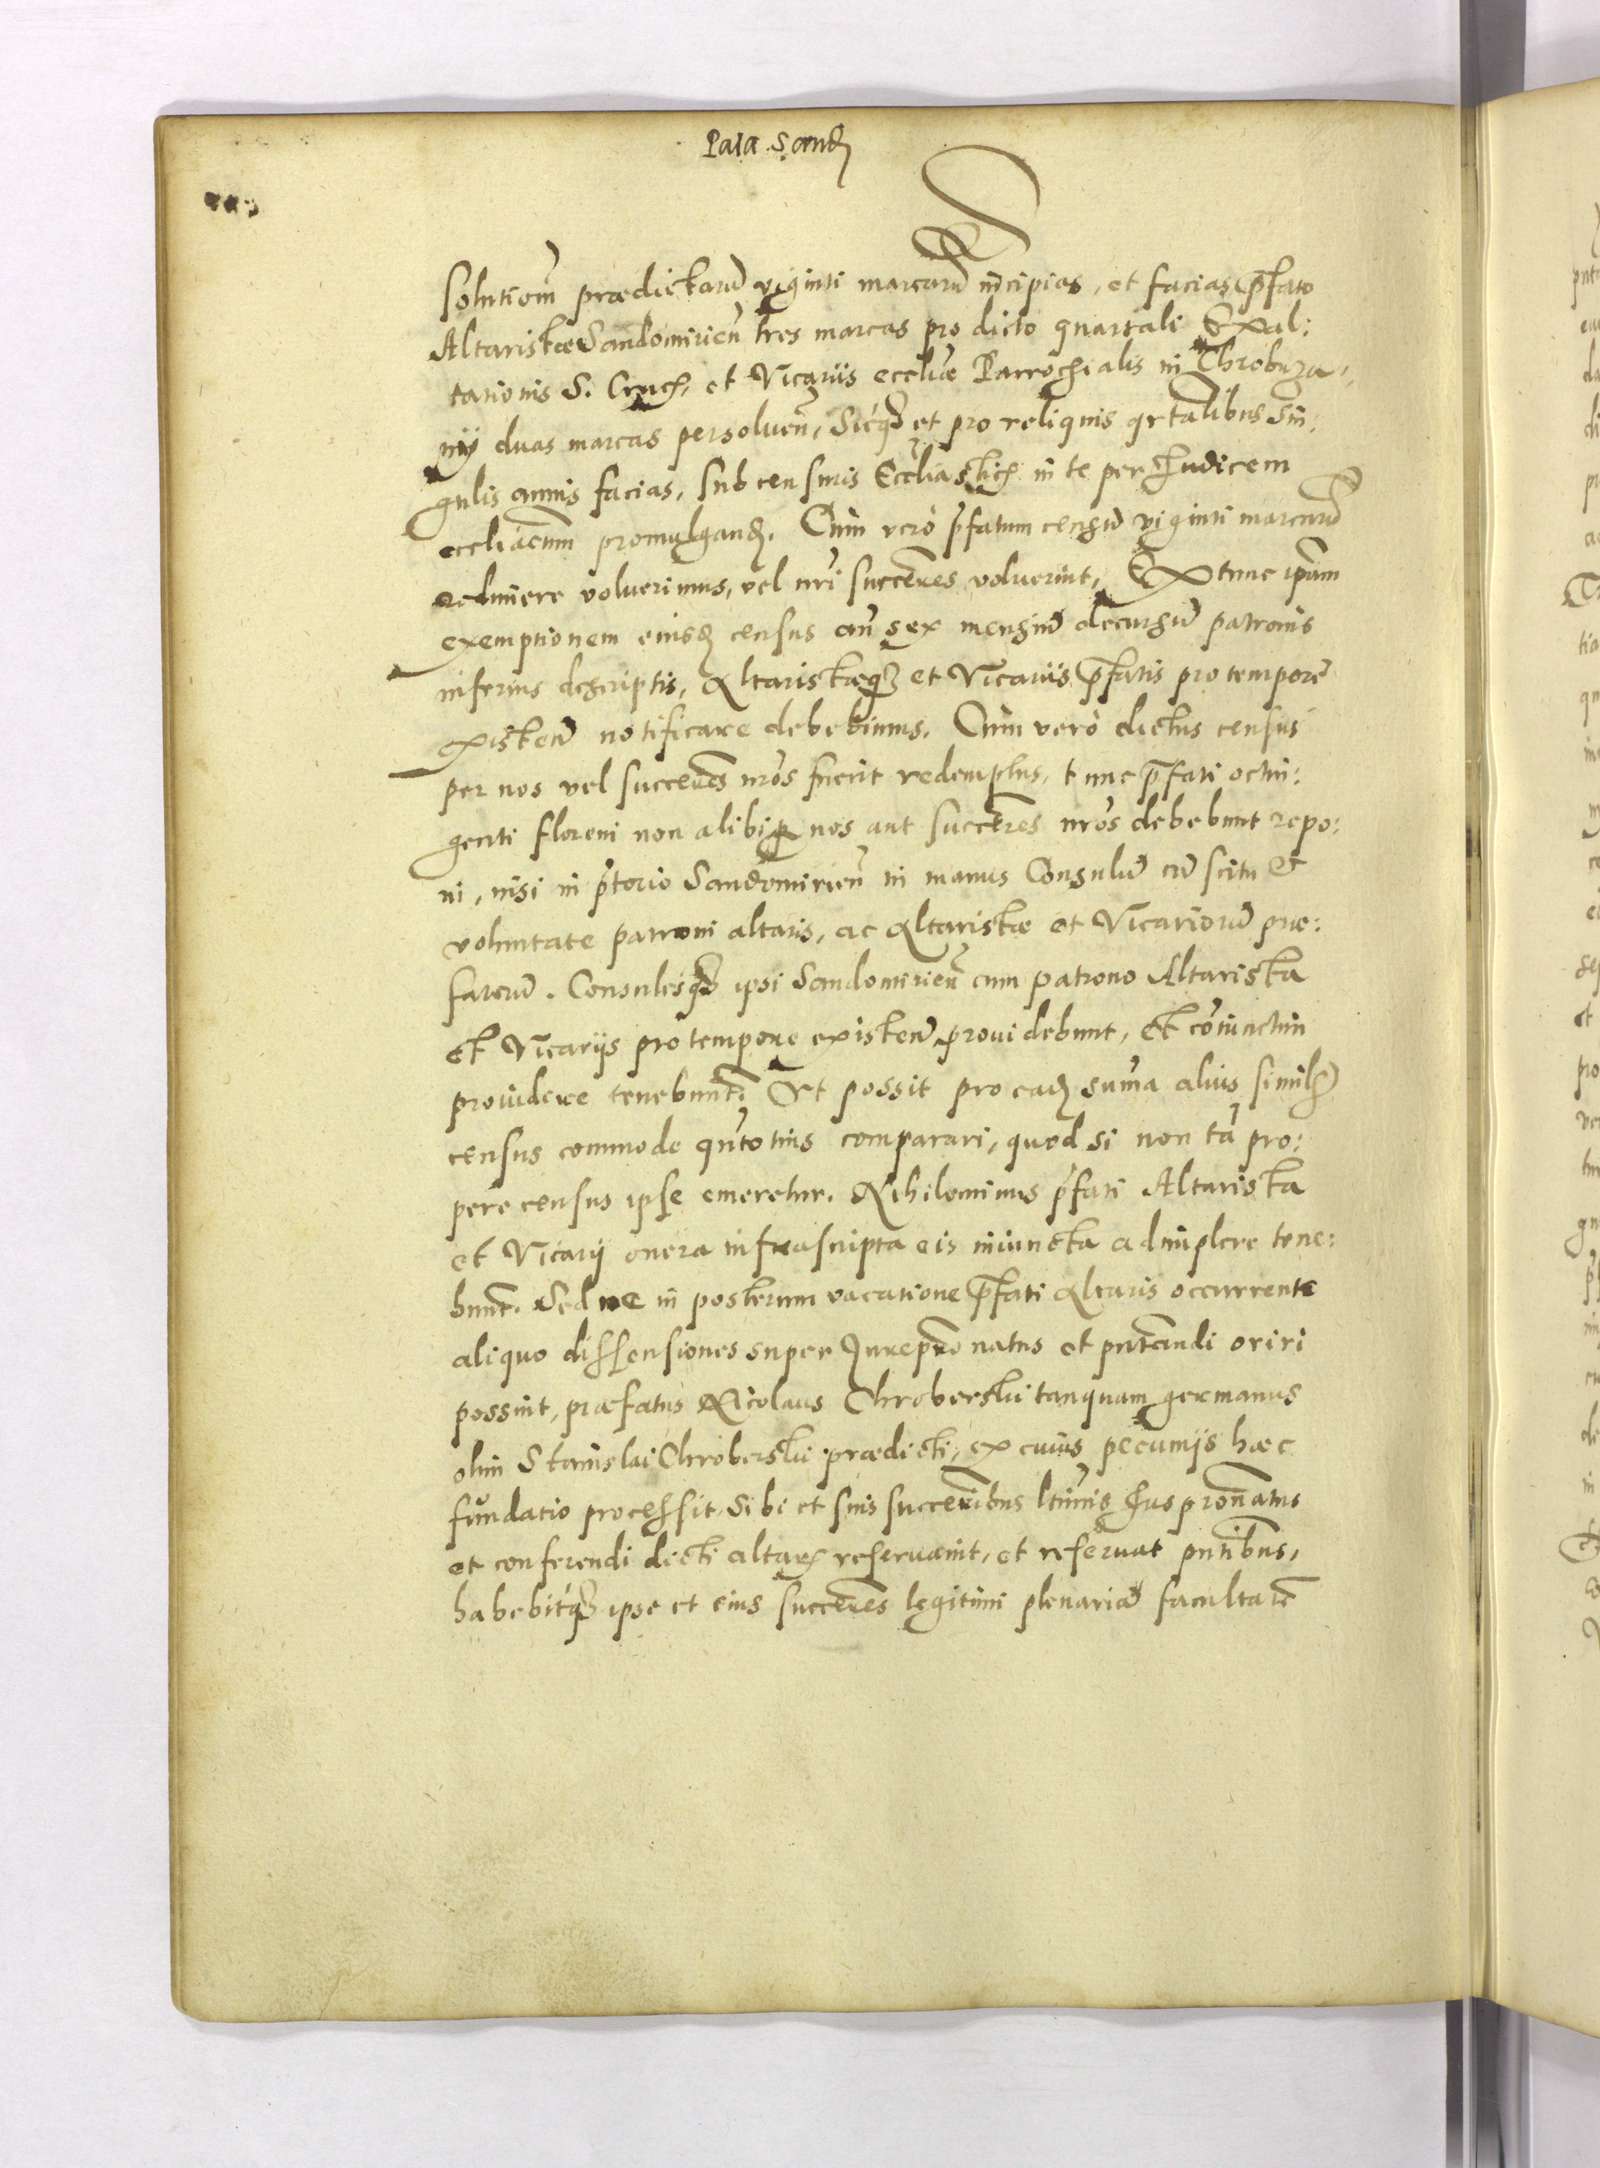 Pala Sand
Solutiom̃ prædictarũ viginti marcarũ incipias, et facias p̃fato
Altaristæ Sandomirieñ tres marcas pro dicto quartali Exal:
tationis S. Cruc, et Vicariis eccliæ Parrochialis in Chrobrza:
nÿ duas marcas persolueñ, Sicq; et pro reliquis qrtalibus Sin:
gulis annis facias, sub censuris Eccliastic in te per Judicem
eccliacum promulgand. Cum verò p̃fatum censũ viginti marcarũ
redimere voluerimus, vel nr̃i succẽres voluerint, Extunc ipam
exemptionem eiusd census añ sex mensiũ decursũ patronis
inferius descriptis, Altaristæq; et Vicariis p̃fatis pro tempore
existeñ notificare debebimus. Cum verò dictus census
per nos vel succẽres nr̃os fuerit redemptus, tunc p̃fati octin:
genti floreni non alibi per nos aut succẽres nr̃os debebunt repo:
ni, nisi in p̃torio Sandomirieñ in manus Consulũ cũ scitu et
voluntate patroni altaris, ac Altaristæ et Vicariorũ præ:
fatorũ. Consulesq; ipsi Sandomirieñ cum patrono Altarista
et Vicarÿs pro tempore existeñ prouidebunt, et coniunctim
prouidere tenebunt: Ut possit pro ead sum̃a alius simil
census commode q̃ntotius comparari, quod si non tã pro:
pere census ipse emeretur. Nihilominus p̃fati Altarista
et Vicarÿ onera infrascripta eis iniuncta adimplere tene:
bunt. Sed ne in posterum vacatione p̃fati Altaris occurrente
aliquo dissensiones super Jurepr̃onatus et pñtandi oriri
possint, præfatus Nicolaus Chroberski tanquam germanus
olim Stanislai Chroberski prædicti, ex cuius pecunÿs hæc
fundatio processit, Sibi et suis succẽribus ltimis Jus pronatus
et conferendi dicti altar reseruauit, et reseruat pñtibus,
habebitq; ipse et eius succẽres legitimi plenariã facultatẽ